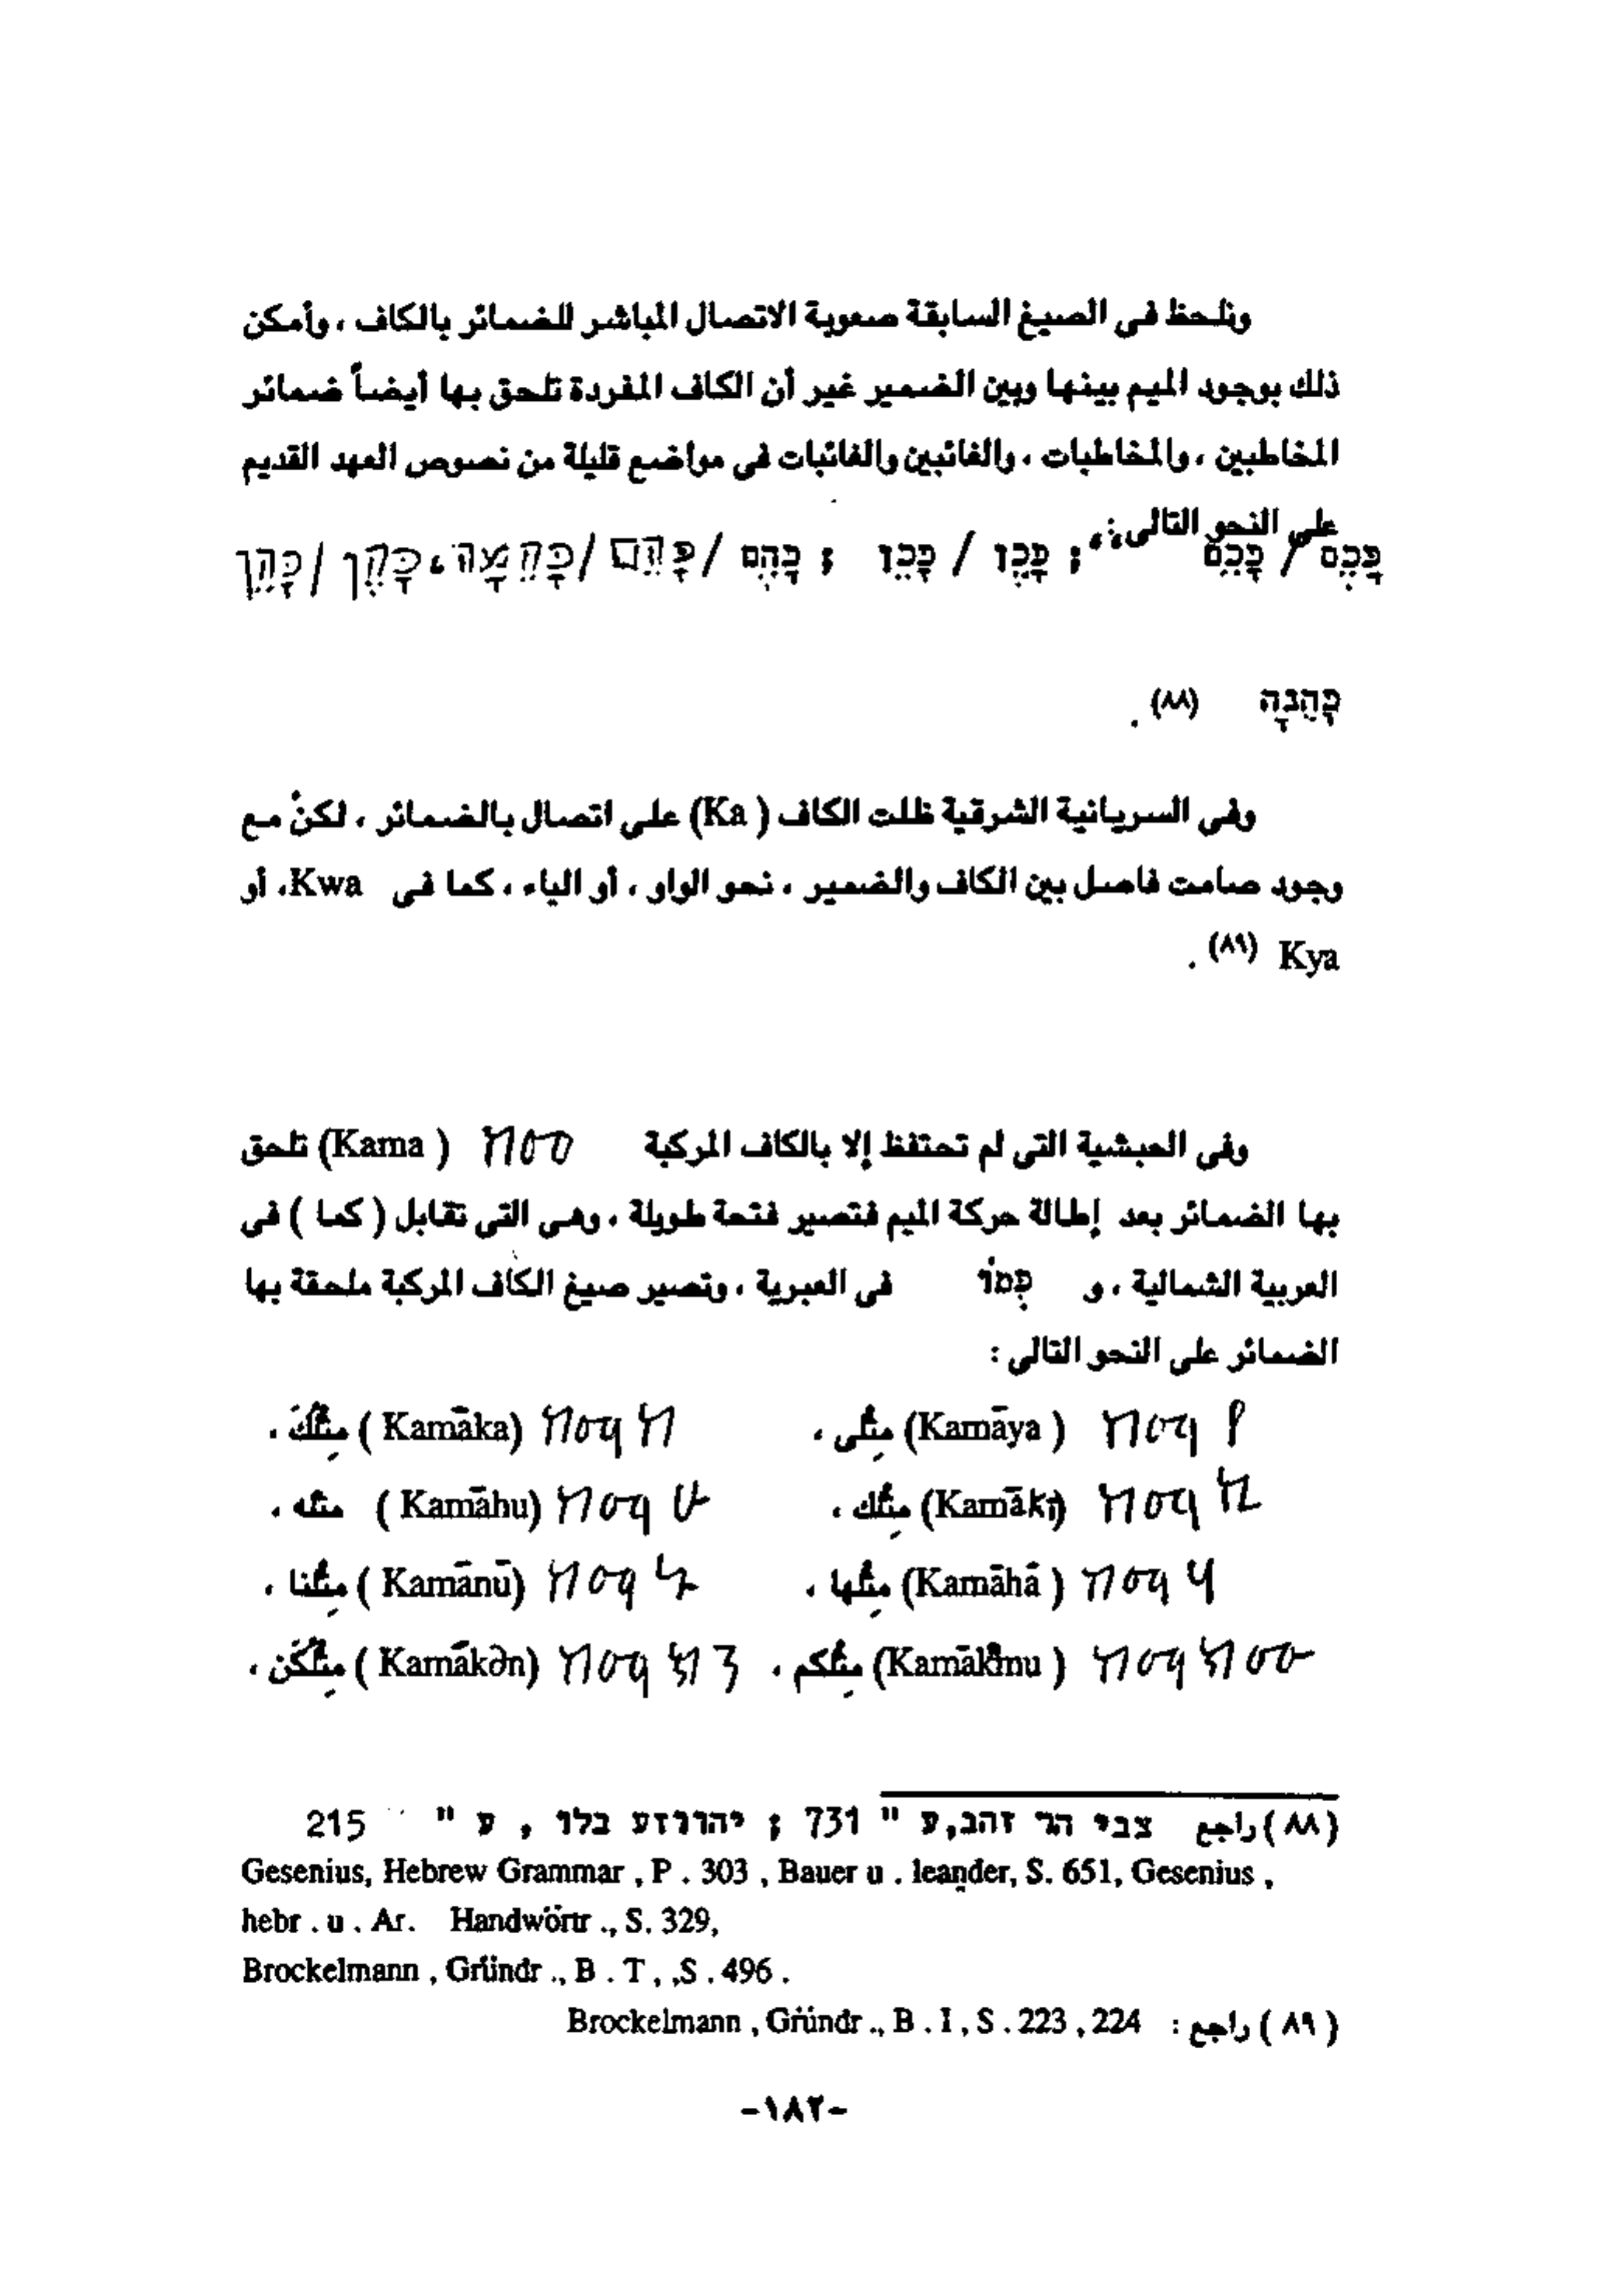 ونلحظ فى الصيغ السابقة صعوبة الاتصال المباشر للضمائر بالكاف ، وأمكن
ذلك بوجود الميم بينها وبين الضمير غير أن الكاف المفردة تلحق بها أيضاً ضمائر
المخاطبين ، والمخاطبات ، والغائبين والغائبات فى مواضع قليلة من نصوص العهد القديم
على النحو التالى :
כָּכֶם / כָּכֵם ، ؛ כָּכֶן / כָּכֵן ؛ כָּהֶם / כָּהֵם / כָּהֵמָּה ، כָּהֶן / כָּהֵן
כָּהֵנָּה (٨٨) .
وفى السريانية الشرقية ظلت الكاف ( Ka) على اتصال بالضمائر ، لكنْ مع
وجود صامت فاصل بين الكاف والضمير ، نحو الواو ، أو الياء ، كما فى Kwa، أو
Kya (٨٩) .
وفى الحبشية التى لم تحتفظ إلا بالكاف المركبة ከመ ( Kama) تلحق
بها الضمائر بعد إطالة حركة الميم فتصير فتحة طويلة ، وهى التى تقابل ( كما ) فى
العربية الشمالية ، و כְּמוֹ فى العبرية ، وتصير صيغ الكاف المركبة ملحقة بها
الضمائر على النحو التالى :
ከማየ ( Kamāya) مِثْلى ، ከማከ (Kamāka ) مِثْلَكَ ،
ከማኪ (Kamākī) مِثْلك ، ከማሁ (Kamāhu ) مثله ،
ከማሃ ( Kamāhā) مِثْلها ، ከማነ (Kamānū ) مِثْلنا ،
ከማክሙ ( Kamākəmu) مِثْلكم ، ከማክን (Kamākən ) مِثْلَكُن ،
( ٨٨ ) راجع צבי הר זהב,ע " 731 ; יהורזע בלו , ע " 215
Gesenius, Hebrew Grammar , P . 303 , Bauer u . leander, S. 651, Gesenius ,
hebr . u . Ar. Handwörtr ., S. 329,
Brockelmann , Gründr ., B . T , ,S . 496 .
( ٨٩ ) راجع : Brockelmann , Gründr ., B . I , S . 223 , 224
-١٨٢-